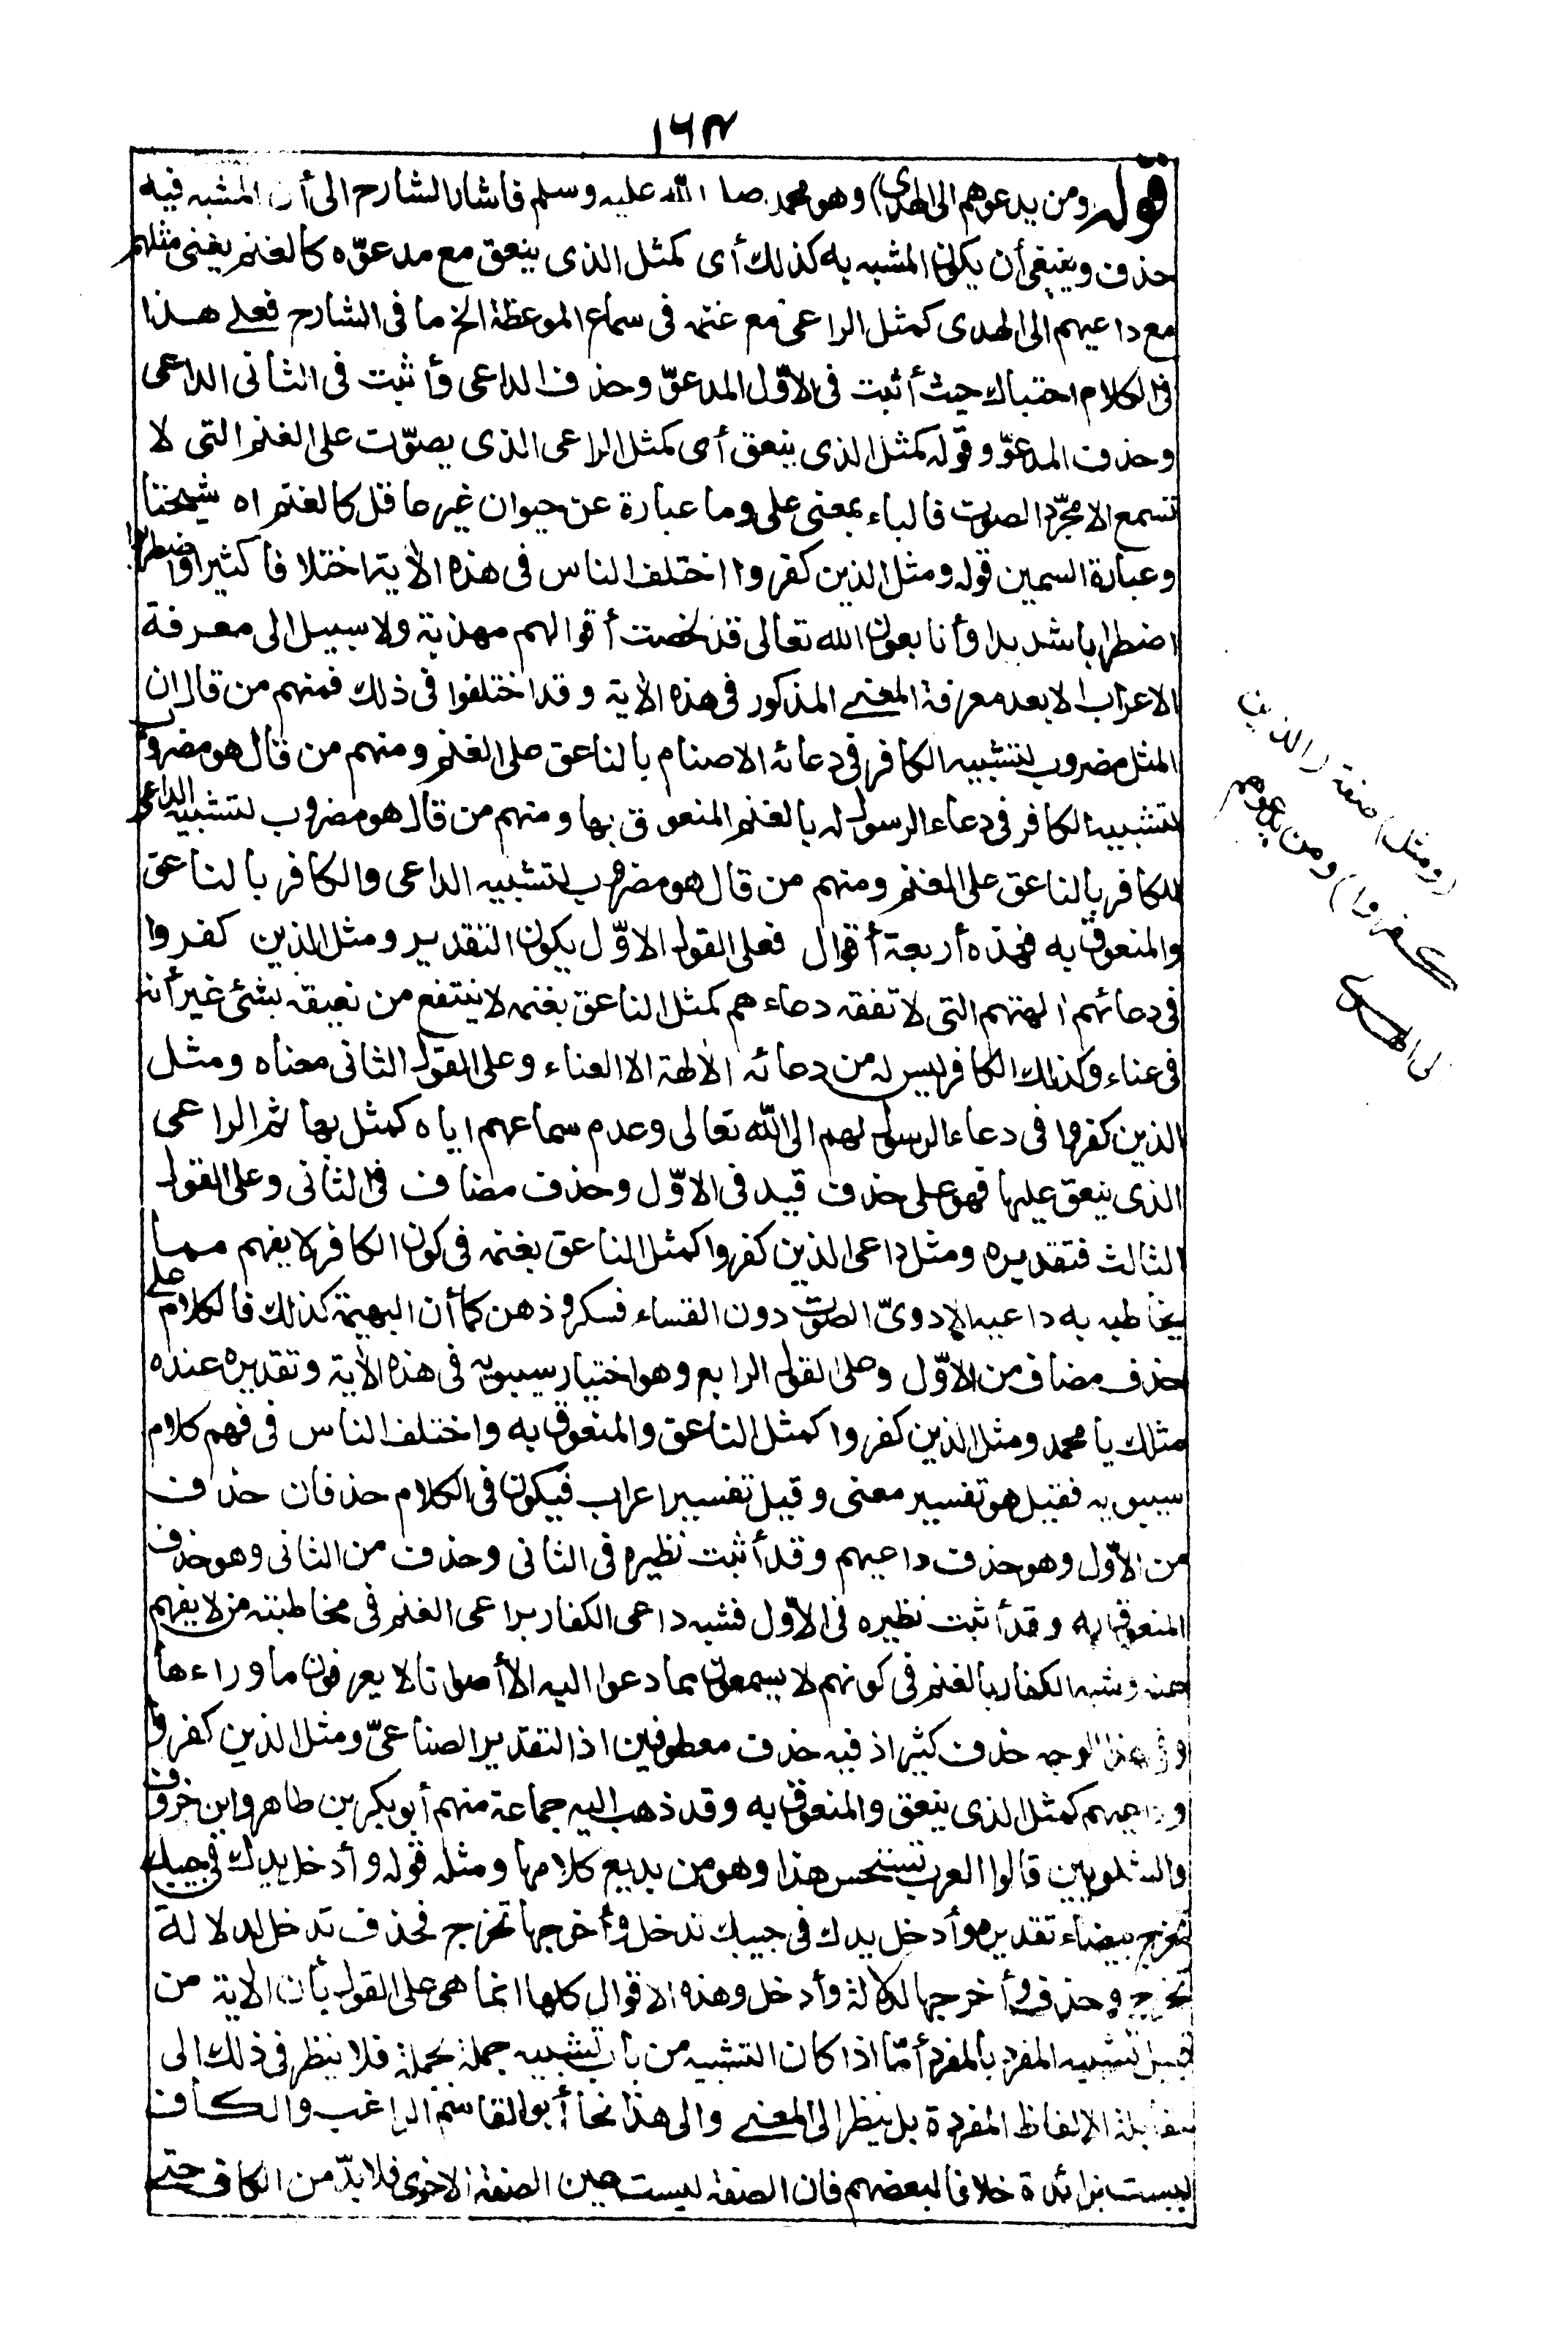 ١٦٣
قوله (ومن يدعوهم الى الهدى) وهو محمد صلى الله عليه وسلم فأشار الشارح الى أن المشبه فيه
حذف وينبغى أن يكون المشبه به كذلك أى كمثل الذى ينعق مع مدعوّه كالغنم يعنى مثلهم
مع داعيهم الى الهدى كمثل الراعى مع غنمه فى سماع الموعظة الخ ما فى الشارح فعلى هذا
فى الكلام احتباك حيث أثبت فى الاوّل المدعوّ وحذف الداعى وأثبت فى الثانى الداعى
وحذف المدعوّ وقوله كمثل الذى ينعق أى كمثل الراعى الذى يصوّت على الغنم التى لا
تسمع الا مجرّد الصوت فالباء بمعنى على وما عبارة عن حيوان غير عاقل كالغنم اه شيخنا
وعبارة السمين قوله ومثل الذين كفروا اختلف الناس فى هذه الآية اختلافا كثيرا واضطربوا
اضطرابا شديدا وأنا بعون الله تعالى قد لخصت أقوالهم مهذبة ولا سبيل الى معرفة
الاعراب الا بعد معرفة المعنى المذكور فى هذه الآية وقد اختلفوا فى ذلك فمنهم من قال ان
المثل مضروب لتشبيه الكافر فى دعائه الاصنام بالناعق على الغنم ومنهم من قال هو مضروب
لتشبيه الكافر فى دعاء الرسول له بالغنم المنعوق بها ومنهم من قال هو مضروب لتشبيه الداعى
للكافر بالناعق على الغنم ومنهم من قال هو مضروب لتشبيه الداعى والكافر بالناعق
والمنعوق به فهذه أربعة أقوال فعلى القول الاوّل يكون التقدير ومثل الذين كفروا
فى دعائهم آلهتهم التى لا تفقه دعاءهم كمثل الناعق بغنمه لا ينتفع من نعيقه بشئ غير أنه
فى عناء وكذلك الكافر ليس له من دعائه الآلهة الا العناء وعلى القول الثانى معناه ومثل
الذين كفروا فى دعاء الرسول لهم الى الله تعالى وعدم سماعهم اياه كمثل بهائم الراعى
الذى ينعق عليها فهو على حذف قيد فى الاوّل وحذف مضاف فى الثانى وعلى القول
الثالث فتقديره ومثل داعى الذين كفروا كمثل الناعق بغنمه فى كون الكافر لا يفهم مما
يخاطبه به داعيه الا دوىّ الصوت دون القاء فكر وذهن كما أن البهيمة كذلك فالكلام على
حذف مضاف من الاوّل وعلى القول الرابع وهو اختيار سيبويه فى هذه الآية وتقديره عنده
مثلك يا محمد ومثل الذين كفروا كمثل الناعق والمنعوق به واختلف الناس فى فهم كلام
سيبويه فقيل هو تفسير معنى وقيل تفسير اعراب فيكون فى الكلام حذفان حذف
من الاوّل وهو حذف داعيهم وقد أثبت نظيره فى الثانى وحذف من الثانى وهو حذف
المنعوق به وقد أثبت نظيره فى الاوّل فشبه داعى الكفار براعى الغنم فى مخاطبته من لا يفهم
عنه وشبه الكفار بالغنم فى كونهم لا يسمعون مما دعوا اليه الا أصواتا لا يعرفون ما وراءها
وفى هذا الوجه حذف كثير اذ فيه حذف معطوفين اذ التقدير الصناعىّ ومثل الذين كفروا
وداعيهم كمثل الذى ينعق والمنعوق به وقد ذهب اليه جماعة منهم أبو بكر بن طاهر وابن خروف
والشلوبين قالوا العرب تستحسن هذا وهو من بديع كلامها ومثله قوله وأدخل يدك فى جيبك
تخرج بيضاء تقديره وأدخل يدك فى جيبك تدخل وأخرجها تخرج فحذف تدخل لدلالة
تخرج وحذف وأخرجها لدلالة وأدخل وهذه الاقوال كلها انما هى على القول بأن الآية من
قبيل تشبيه المفرد بالمفرد أمّا اذا كان التشبيه من باب تشبيه جملة بجملة فلا ينظر فى ذلك الى
مقابلة الالفاظ المفردة بل ينظر الى المعنى والى هذا نحا أبو القاسم الراغب والكاف
ليست بزائدة خلافا لبعضهم فان الصفة ليست عين الصفة الاخرى فلا بدّ من الكاف حتى
(ومثل) صفة (الذين
كفروا) ومن يدعوهم
الى الهدى